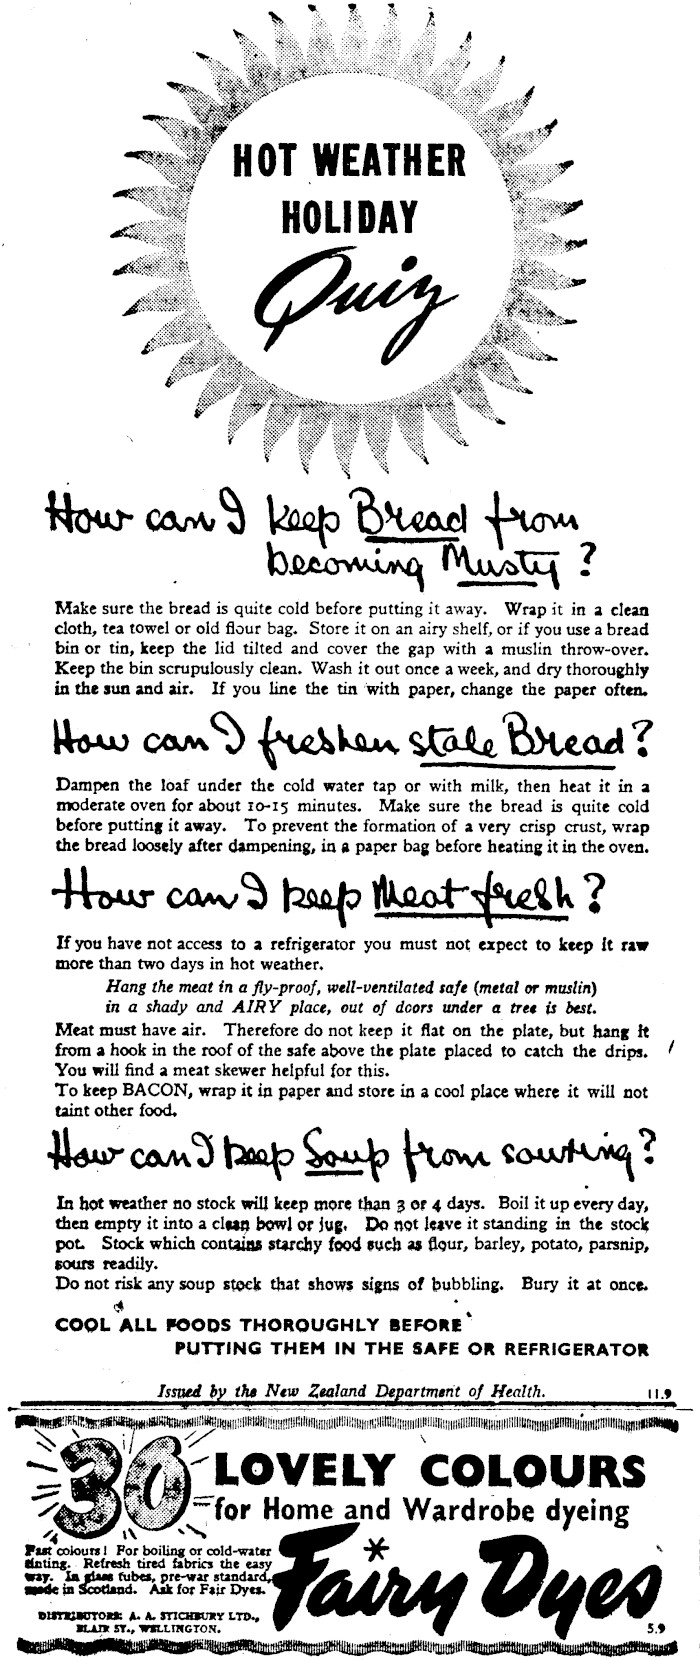 HOT WEATHER
HOLIDAY
Quiz
How can I keep Bread from
becoming Musty?
Make sure the bread is quite cold before putting it away. Wrap it in a clean
cloth, tea towel or old flour bag. Store it on an airy shelf, or if you use a bread
bin or tin, keep the lid tilted and cover the gap with a muslin throw-over.
Keep the bin scrupulously clean. Wash it out once a week, and dry thoroughly
in the sun and air. If you line the tin with paper, change the paper often.
How can I freshen stale Bread?
Dampen the loaf under the cold water tap or with milk, then heat it in a
moderate oven for about 10-15 minutes. Make sure the bread is quite cold
before putting it away. To prevent the formation of a very crisp crust, wrap
the bread loosely after dampening, in a paper bag before heating it in the oven.
How can I keep Meat fresh?
If you have not access to a refrigerator you must not expect to keep it raw
more than two days in hot weather.
Hang the meat in a fly-proof, well-ventilated safe (metal or muslin)
in a shady and AIRY place, out of doors under a tree is best.
Meat must have air. Therefore do not keep it flat on the plate, but hang it
from a hook in the roof of the safe above the plate placed to catch the drips.
You will find a meat skewer helpful for this.
To keep BACON, wrap it in paper and store in a cool place where it will not
taint other food.
How can I keep Soup from souring?
In hot weather no stock will keep more than 3 or 4 days. Boil it up every day,
then empty it into a clean bowl or jug. Do not leave it standing in the stock
pot. Stock which contains starchy food such as flour, barley, potato, parsnip,
sours readily.
Do not risk any soup stock that shows signs of bubbling. Bury it at once.
COOL ALL FOODS THOROUGHLY BEFORE
PUTTING THEM IN THE SAFE OR REFRIGERATOR
Issued by the New Zealand Department of Health. 11.9
30 LOVELY COLOURS
for Home and Wardrobe dyeing
Fast colours! For boiling or cold-water
tinting. Refresh tired fabrics the easy
way. In glass tubes, pre-war standard,
made in Scotland. Ask for Fair Dyes.
Fairy Dyes
DISTRIBUTORS: A. A. STICHBURY LTD.,
BLAIR ST., WELLINGTON.
5.9